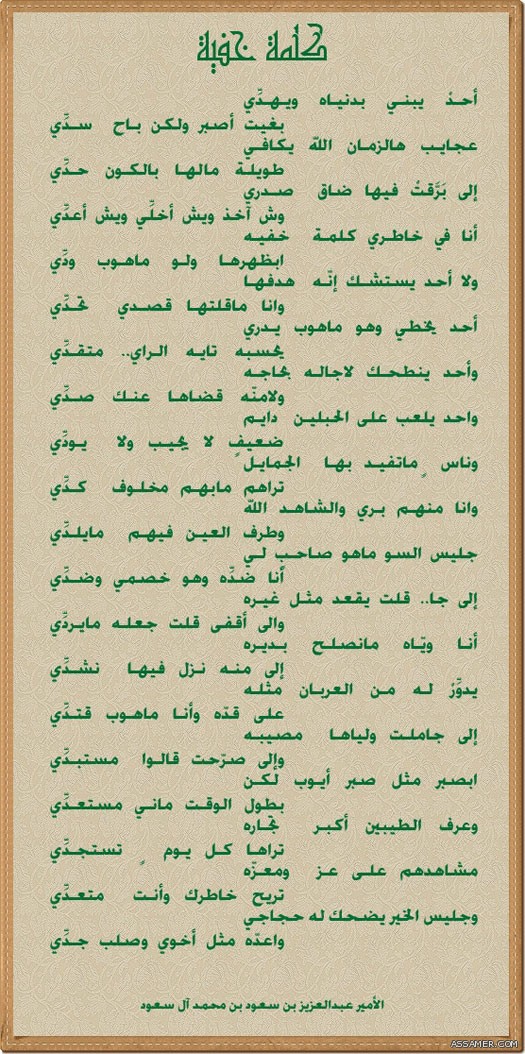 كلمة خفية
أحدٌ يبني بدنياه ويهدِّي
بغيت أصبر ولكن باح سدِّي
عجايب هالزمان اللّه يكافي
طويلة مالها بالكون حدِّي
إلى بَرَّقتْ فيها ضاق صدري
وش آخذ ويش أخلِّي ويش أعدِّي
أنا في خاطري كلمة خفيه
ابظهرها ولو ماهوب ودِّي
ولا أحد يستشك إنّه هدفها
وانا ماقلتها قصدي تحدِّي
أحد يخطي وهو ماهوب يدري
يحسبه تايه الراي.. متقدِّي
وأحد ينطحك لاجاله بحاجه
ولامنّه قضاها عنك صدِّي
واحد يلعب على الحبلين دايم
ضعيفٍ لا يجيب ولا يودِّي
وناسٍ ماتفيد بها الجمايل
تراهم مابهم مخلوف كدِّي
وانا منهم بري والشاهد اللّه
وطرف العين فيهم مايلدِّي
جليس السو ماهو صاحبٍ لي
أنا ضدّه وهو خصمي وضدِّي
إلى جا.. قلت يقعد مثل غيره
والى أقفى قلت جعله مايردِّي
أنا ويّاه مانصلح بديره
إلى منه نزل فيها نشدِّي
يدوِّرْ له من العربان مثله
على قدّه وأنا ماهوب قتدِّي
إلى جاملت ولياها مصيبه
وإلى صرّحت قالوا مستبدِّي
ابصبر مثل صبر أيوب لكن
بطول الوقت ماني مستعدِّي
وعرف الطيبين أكبر تجاره
تراها كل يومٍ تستجدِّي
مشاهدهم على عز ومعزّه
تريح خاطرك وأنت متعدِّي
وجليس الخير يضحك له حجاجي
واعدّه مثل أخوي وصلب جدِّي
الأمير عبدالعزيز بن سعود بن محمد آل سعود
ASSAMER.COM